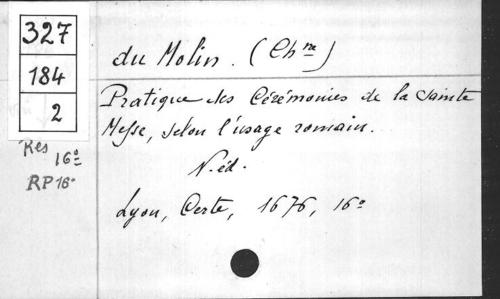 327
184
2
Res 16º
RP 16º
du Molin. (Chne)
Pratique des Cérémonies de la Sainte
Messe, selon l'usage romain.
N. éd.
Lyon, Certe, 1676, 16º